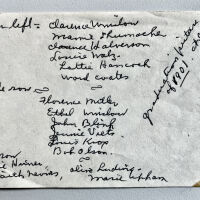 left = Clarence Winslow
Mamie Shumacher
Clarence Halverson
Louise Walz
Lottie Hancock
Word Coats
row =
Florence Miller
Ethel Winslow
John
Jennie Viets
Louis Krops
Bob Olson.
row
Haines
Nevins, Olive
Marie Upham
graduation picture
of 1901